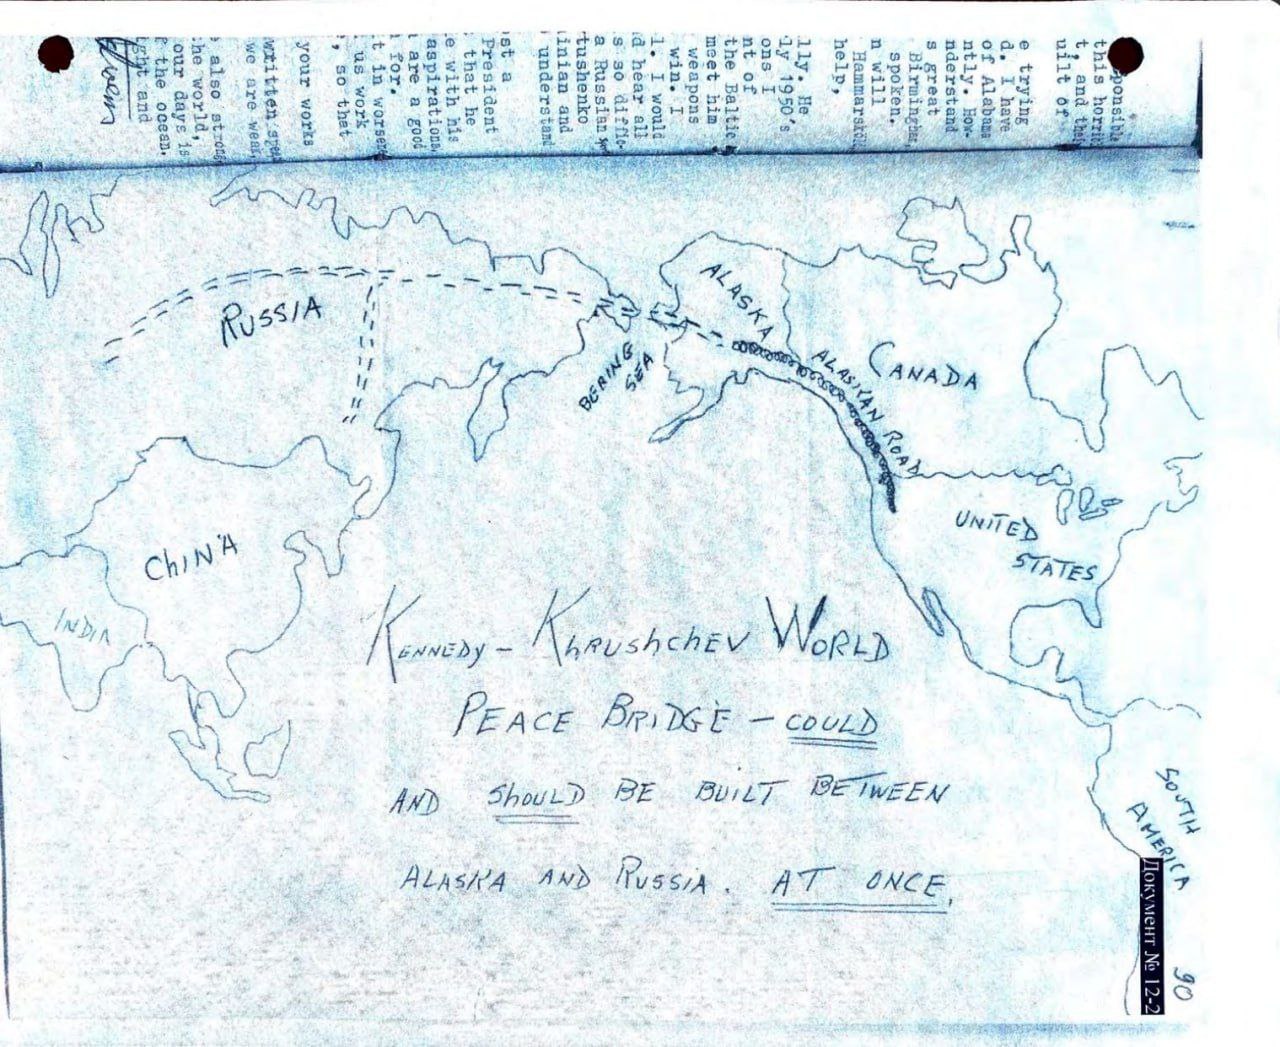 ponsible
this horri
t, and th
uilt of
e trying
d. I have
of Alabama
ntly. How-
nderstand
s great
Birmingham,
spoken.
n will
Hammarsk
help,
lly. He
ly 1950's
ons I
nt of
the Baltic
meet him
weapons
win. I
l. I would
d hear all
s so diffic-
a Russian
tushenko
inian and
understand
st a
President
that he
e with his
aspirations
are a good
for.
t in worsen
us work
, so that
your works
written
we are weak
also strong
he world,
our days is
the ocean.
ght and
RUSSIA
ALASKA
BERING
SEA
ALASKAN ROAD
CANADA
CHINA
INDIA
UNITED
STATES
KENNEDY - KHRUSHCHEV WORLD
PEACE BRIDGE - COULD
AND SHOULD BE BUILT BETWEEN
ALASKA AND RUSSIA. AT ONCE.
SOUTH
AMERICA
Документ № 12-2
90